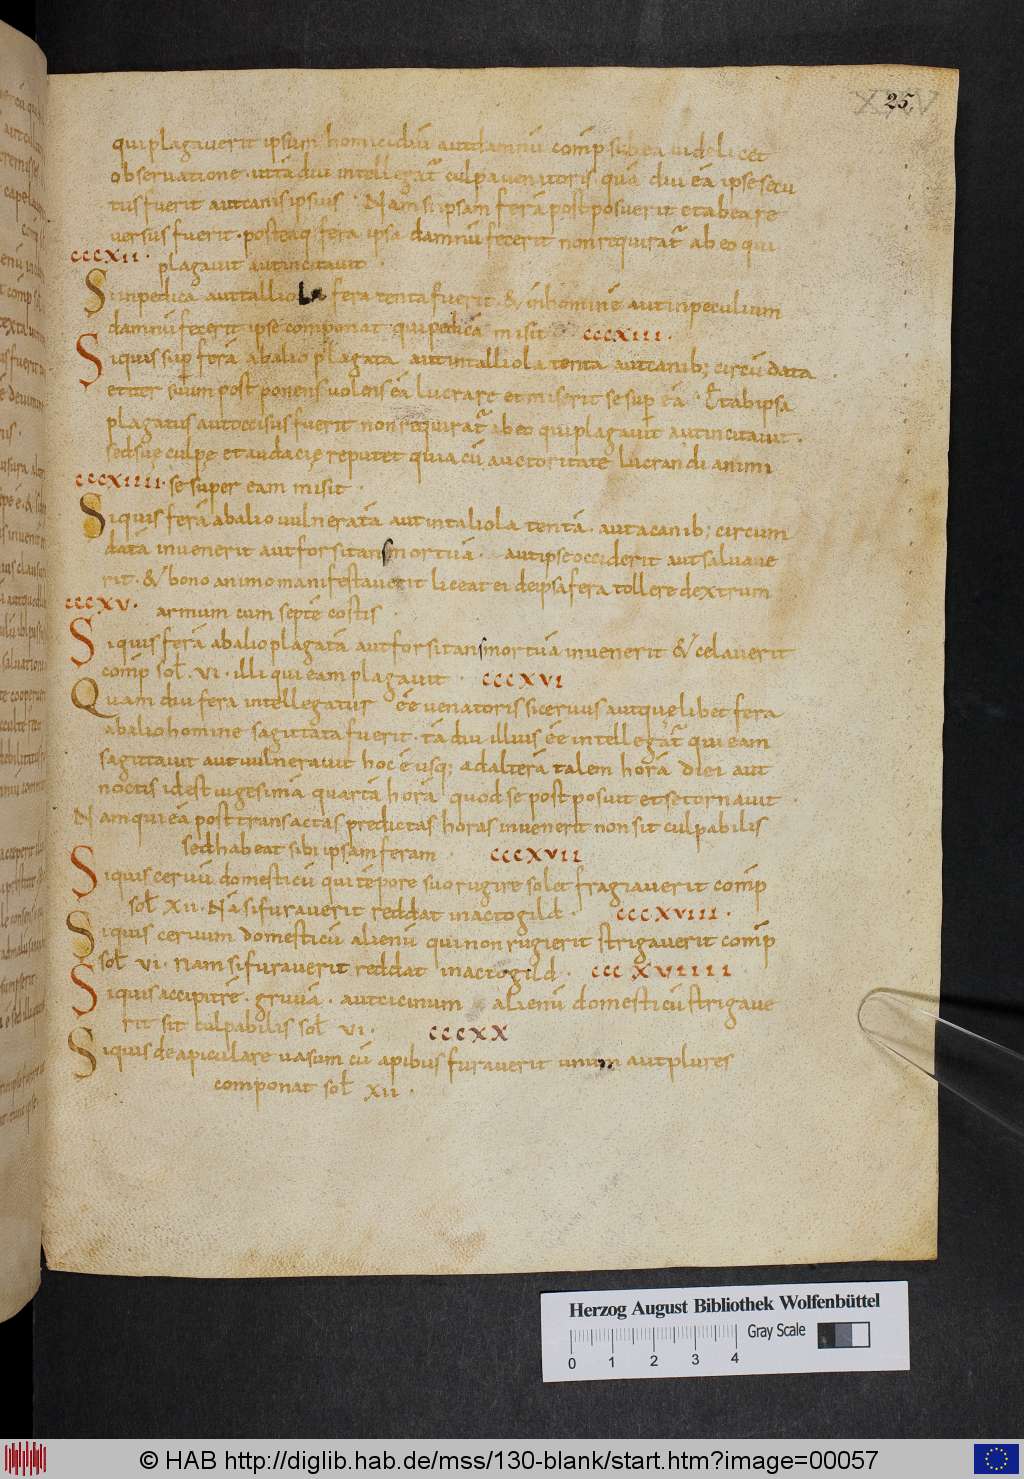 25.
qui plagaverit ipsum homicidiū aut damnū comp̄ sub ea videlicet
observatione. ut tā diu intellegat̄ culpa venatoris. quā diu eā ipse secu
tus fuerit aut canis ipsius. Nam si ipsam ferā postposuerit et ab ea re
versus fuerit. posteaq; fera ipsa damnū fecerit non requirat̄ ab eo qui
CCCXII. plagavit aut incitavit.
Si in pedica aut talliola fera tenta fuerit. & in hominē aut in peculium
damnū fecerit ipse componat qui pedicā misit. CCCXIII.
Si quis sup̄ ferā ab alio plagata aut in talliola tenta aut canib; circūdata
et iter suum postponens volens eā lucrare et miserit se sup̄ eā. Et ab ipsa
plagatus aut occisus fuerit non requirat̄ ab eo qui plagavit aut incitavit.
sed suę culpę et audacię reputet quia cū auctoritate lucrandi animi
CCCXIIII. se super eam misit.
Si quis ferā ab alio vulneratā aut in taliola tentā. aut a canib; circum
datā invenerit aut forsitan mortuā. aut ipse occiderit aut salvave
rit. & bono animo manifestaverit liceat ei de ipsa fera tollere dextrum
CCCXV. armum cum septē costis.
Si quis ferā ab alio plagatā aut forsitan mortuā invenerit & celaverit
comp̄ sol̄. VI. illi qui eam plagavit. CCCXVI
Quam diu fera intellegatur eē venatoris si cervus aut quelibet fera
ab alio homine sagittata fuerit. tā diu illius eē intellegat̄ qui eam
sagittavit aut vulneravit hoc ē usq; ad alterā talem horā diei aut
noctis id est vigesimā quartā horā quod se postposuit et se tornavit.
Nam qui eā post transactas predictas horas invenerit non sit culpabilis
sed habeat sibi ipsam feram. CCCXVII
Si quis cervū domesticū qui tēpore suo rugire solet fragiaverit comp̄
sol̄ XII. Nā si furaverit reddat in actogild. CCCXVIII.
Si quis cervum domesticū alienū qui non rugierit strigaverit comp̄
sol̄ VI. nam si furaverit reddat in actogild. CCCXVIIII
Si quis accipitrē. gruvā. aut cicinum alienū domesticū strigave
rit sit culpabilis sol̄ VI. CCCXX
Si quis de apiculare vasum cū apibus furaverit unum aut plures
componat sol̄ XII.
Herzog August Bibliothek Wolfenbüttel
Gray Scale
0 1 2 3 4
© HAB http://diglib.hab.de/mss/130-blank/start.htm?image=00057